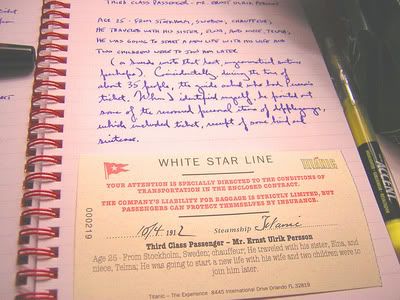 THIRD CLASS PASSENGER - MR. ERNST ULRIK PERSSON
AGE 25 - FROM STOCKHOLM, SWEDEN, CHAUFFEUR;
HE TRAVELED WITH HIS SISTER, ELNA, AND NIECE, TELMA;
HE WAS GOING TO START A NEW LIFE WITH HIS WIFE AND
TWO CHILDREN WERE TO JOIN HIM LATER
about 35 people, the guide asked who had Persson's
ticket. When I identified myself he pointed out
some of the recovered personal items of
which included ticket, receipt of some kind and
suitcase.
WHITE STAR LINE
TITANIC
YOUR ATTENTION IS SPECIALLY DIRECTED TO THE CONDITIONS OF
TRANSPORTATION IN THE ENCLOSED CONTRACT.
THE COMPANY'S LIABILITY FOR BAGGAGE IS STRICTLY LIMITED, BUT
PASSENGERS CAN PROTECT THEMSELVES BY INSURANCE.
000219
10/4. 1912 Steamship Titanic
Third Class Passenger – Mr. Ernst Ulrik Persson
Age 25 - From Stockholm, Sweden; chauffeur, He traveled with his sister, Elna, and
niece, Telma; He was going to start a new life with his wife and two children were to
join him later.
Titanic – The Experience 8445 International Drive Orlando FL 32819
ACCENT